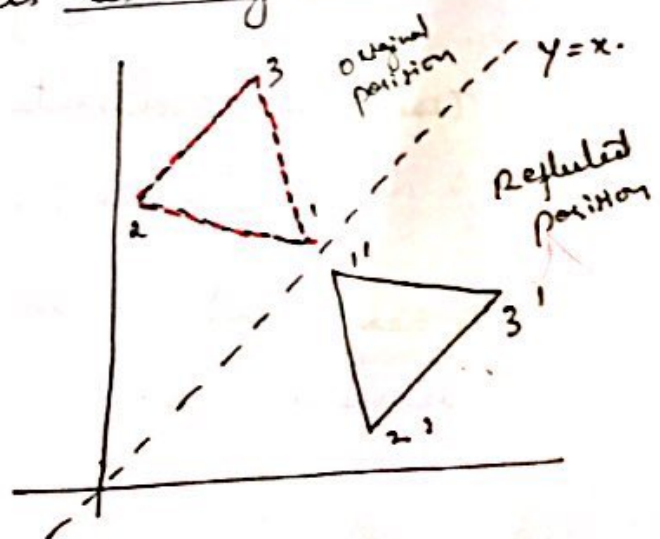 original
position
y = x.
3
2
1
Reflected
position
1'
3'
2'